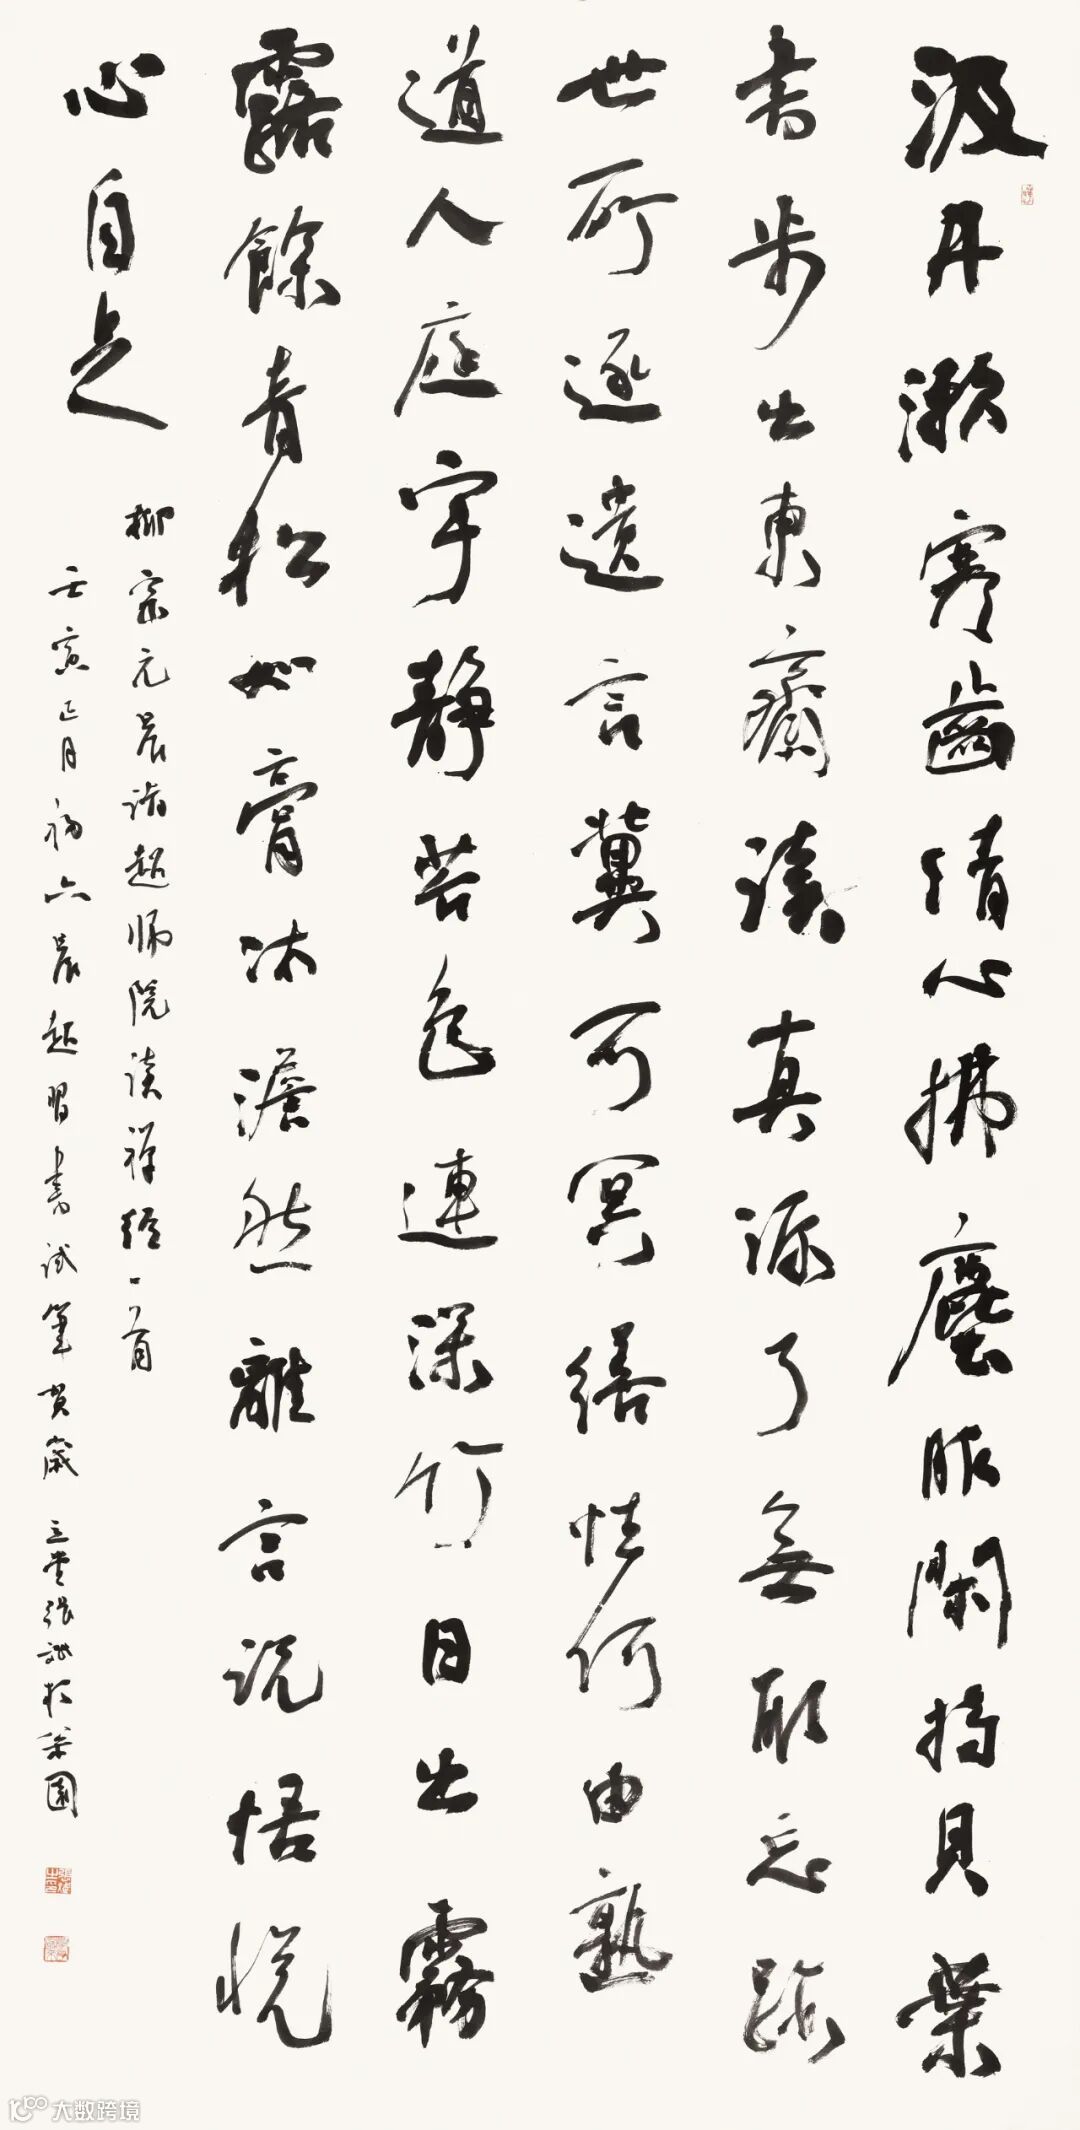 汲井漱寒齒清心拂塵服閑持貝葉
書步出東齋讀真源了無取忘跡
世所逐遺言冀可冥繕性何由熟
道人庭宇靜苔色連深竹日出霧
露餘青松如膏沐澹然離言説悟悦
心自足
柳宗元晨詣超师院讀禪經一首
壬寅正月初六晨起習書试筆賀歲 堂張於園
大数跨境